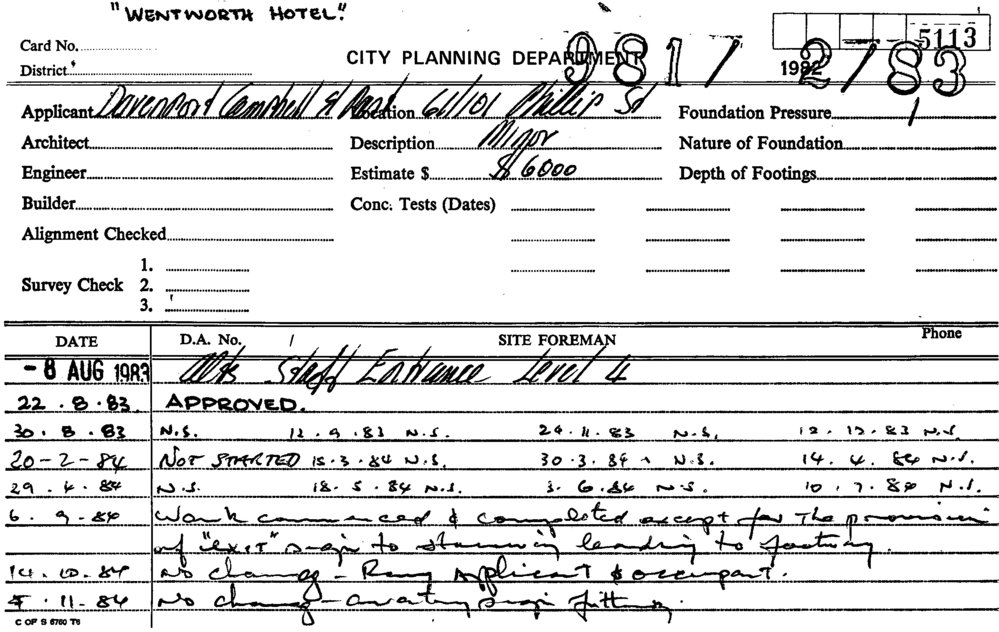 "WENTWORTH HOTEL."
5113
Card No.
CITY PLANNING DEPARTMENT 9817 1982 2783
District
Applicant Davenport Campbell & Location 61/101 Phillip St Foundation Pressure
Architect Description Minor Nature of Foundation
Engineer Estimate $ $6000 Depth of Footings
Builder Conc. Tests (Dates)
Alignment Checked
1.
Survey Check 2.
3.
DATE D.A. No. SITE FOREMAN Phone
- 8 AUG 1983 Alts Staff Entrance Level 4
22 . 8 . 83 APPROVED.
30 . 8 . 83 N.S. 12 . 9 . 83 N.S. 24 . 11 . 83 N.S. 12 . 12 . 83 N.S.
20 - 2 - 84 NOT STARTED 15 . 3 . 84 N.S. 30 . 3 . 84 N.S. 14 . 4 . 84 N.S.
29 . 4 . 84 N.S. 18 . 5 . 84 N.S. 3 . 6 . 84 N.S. 10 . 7 . 84 N.S.
6 . 9 . 84 Work commenced & completed except for the provision
of "exit" sign to stairway leading to footway.
14 . 10 . 84 No change - Rang Applicant & occupant.
11 - 84 No change - awaiting sign fitting.
C OF S 6760 T6